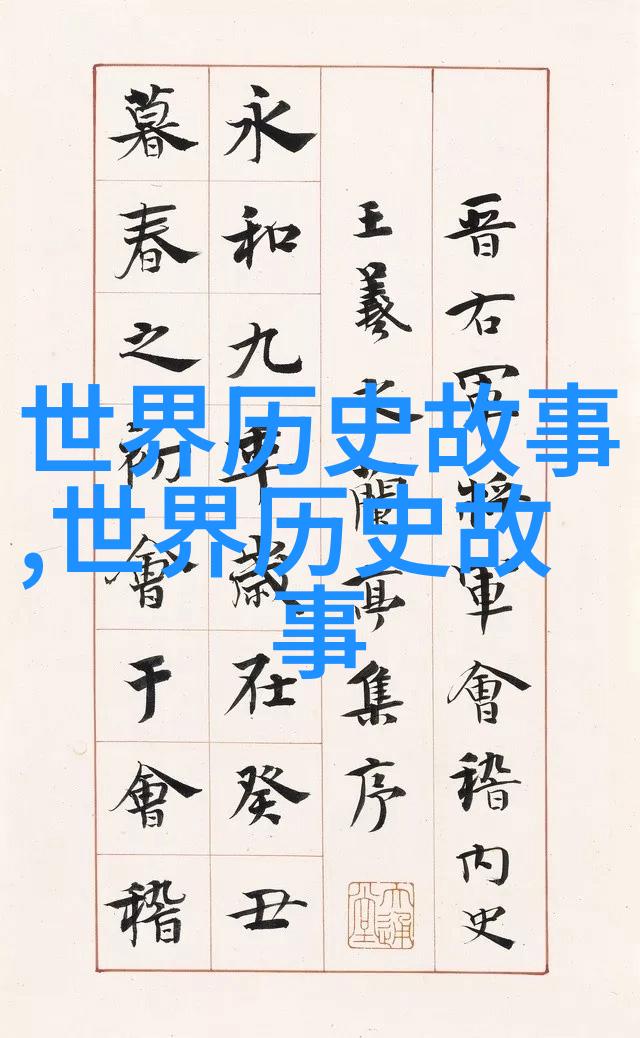 晋右軍將軍會稽内史
王羲之蘭亭集序
永和九年歲在癸丑
暮春之初會于會稽
世界历史故事
,世界历史故
事